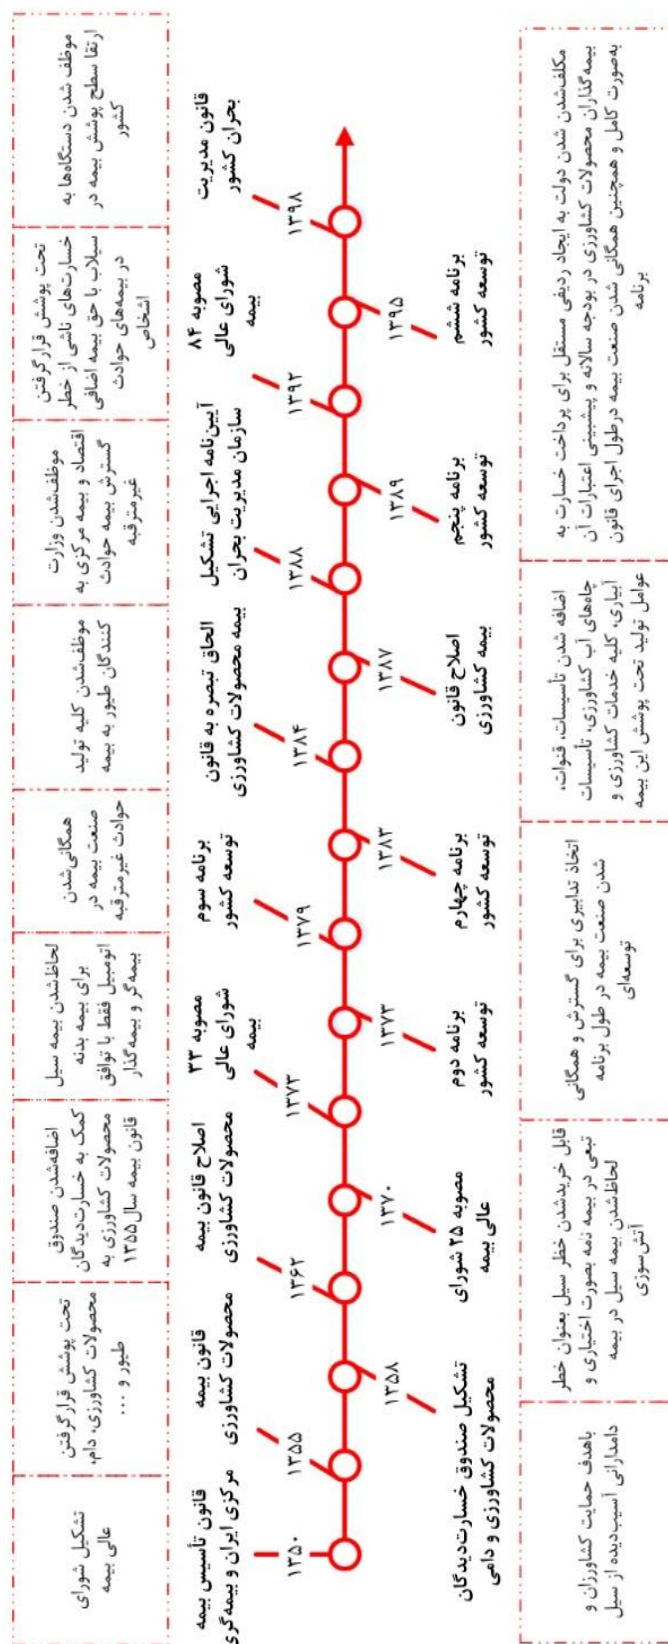 تشکیل شورای
عالی بیمه
تحت پوشش قرارگرفتن
محصولات کشاورزی، دام،
طیور و ...
اضافه‌شدن صندوق
کمک به خسارت‌دیدگان
محصولات کشاورزی به
قانون بیمه سال ۱۳۵۵
لحاظ‌شدن بیمه سیل
برای بیمه بدنه
اتومبیل فقط با توافق
بیمه‌گر و بیمه‌گذار
همگانی‌شدن
صنعت بیمه در
حوادث غیرمترقبه
موظف‌شدن کلیه تولید
کنندگان طیور به بیمه
موظف‌شدن وزارت
اقتصاد و بیمه مرکزی به
گسترش بیمه حوادث
غیرمترقبه
تحت پوشش قرارگرفتن
خسارت‌های ناشی از خطر
سیلاب با حق بیمه اضافی
در بیمه‌های حوادث
اشخاص
موظف شدن دستگاه‌ها به
ارتقا سطح پوشش بیمه در
کشور
قانون تأسیس بیمه
مرکزی ایران و بیمه‌گری
۱۳۵۰
قانون بیمه
محصولات کشاورزی
۱۳۵۵
اصلاح قانون بیمه
محصولات کشاورزی
۱۳۶۲
مصوبه ۳۳
شورای عالی
بیمه
۱۳۷۳
برنامه سوم
توسعه کشور
۱۳۷۹
الحاق تبصره به قانون
بیمه محصولات کشاورزی
۱۳۸۴
آیین‌نامه اجرایی تشکیل
سازمان مدیریت بحران
۱۳۸۸
مصوبه ۸۴
شورای عالی
بیمه
۱۳۹۲
قانون مدیریت
بحران کشور
۱۳۹۸
۱۳۵۸
تشکیل صندوق خسارت‌دیدگان
محصولات کشاورزی و دامی
۱۳۷۰
مصوبه ۲۵ شورای
عالی بیمه
۱۳۷۳
برنامه دوم
توسعه کشور
۱۳۸۳
برنامه چهارم
توسعه کشور
۱۳۸۷
اصلاح قانون
بیمه کشاورزی
۱۳۸۹
برنامه پنجم
توسعه کشور
۱۳۹۵
برنامه ششم
توسعه کشور
باهدف حمایت کشاورزان و
دامدارانی آسیب‌دیده از سیل
قابل خریدشدن خطر سیل بعنوان خطر
تبعی در بیمه نامه بصورت اختیاری و
لحاظ‌شدن بیمه سیل در بیمه
آتش‌سوزی
اتخاذ تدابیری برای گسترش و همگانی
شدن صنعت بیمه در طول برنامه
توسعه‌ای
اضافه شدن تأسیسات، قنوات،
چاه‌های آب کشاورزی، تأسیسات
آبیاری، کلیه خدمات کشاورزی و
عوامل تولید تحت پوشش این بیمه
مکلف‌شدن شدن دولت به ایجاد ردیفی مستقل برای پرداخت خسارت به
بیمه‌گذاران محصولات کشاورزی در بودجه سالانه و پیشبینی اعتبارات آن
به‌صورت کامل و همچنین همگانی شدن صنعت بیمه درطول اجرای قانون
برنامه